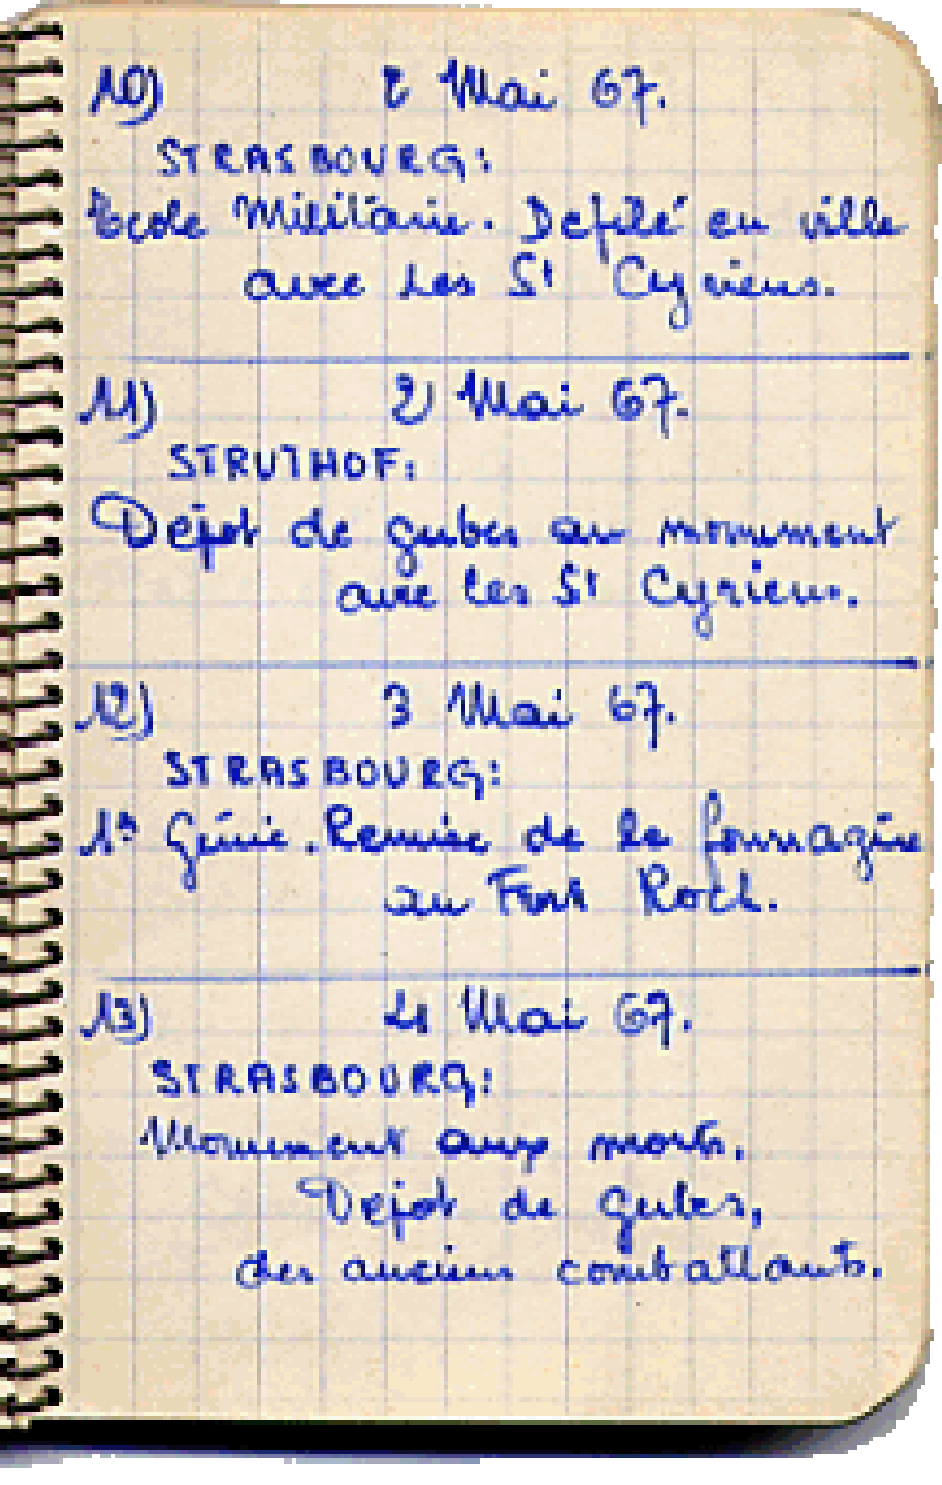 10) 2 Mai 67.
STRASBOURG:
Ecole Militaire. Defilé en ville
avec les St Cyriens.
11) 2) Mai 67.
STRUTHOF:
Depot de gerbes au monument
avec les St Cyriens.
12) 3 Mai 67.
STRASBOURG:
1er Génie. Remise de la fourragère
au Fort Roch.
13) 4 Mai 67.
STRASBOURG:
Monument aux morts.
Depot de Gerbes,
des anciens combattants.